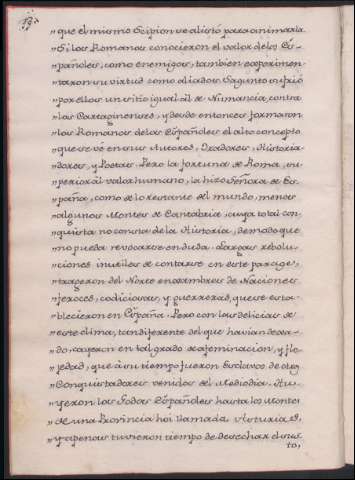 „ que el mismo Scipion se alistó para animarla.
„ Si los Romanos conocieron el valor de los Es-
„ pañoles, como enemigos, tambien experimen-
„ taron su virtud como aliados. Sagunto sufrió
„ por ellos un sitio igual al de Numancia, contra
„ los Cartagineses, y desde entonces formaron
„ los Romanos de los Españoles el alto concepto
„ que se vé en sus Autores, Oradores, Historia-
„ dores, y Poetas. Pero la fortuna de Roma, su-
„ perior al valor humano, la hizo Señora de Es-
„ paña, como de lo restante del mundo, menos
„ algunos Montes de Cantabria, cuya total con-
„ quista no consta de la Historia, de modo que
„ no pueda revocarse en duda. Largas revolu-
„ ciones inutiles de contarse en este parage,
„ trageron del Norte enxambres de Naciones
„ feroces, codiciosas, y guerreras, que se esta-
„ blecieron en España. Pero con las delicias de
„ este clima, tan diferente del que havian dexa-
„ do, cayeron en tal grado de afeminacion, y flo-
„ jedad, que á su tiempo fueron Esclavos de otros
„ Conquistadores venidos del Mediodia. Hu-
„ yeron los Godos Españoles hasta los Montes
„ de una Provincia hoi llamada Asturias,
„ y apenas tuvieron tiempo de desechar el sus-
to,